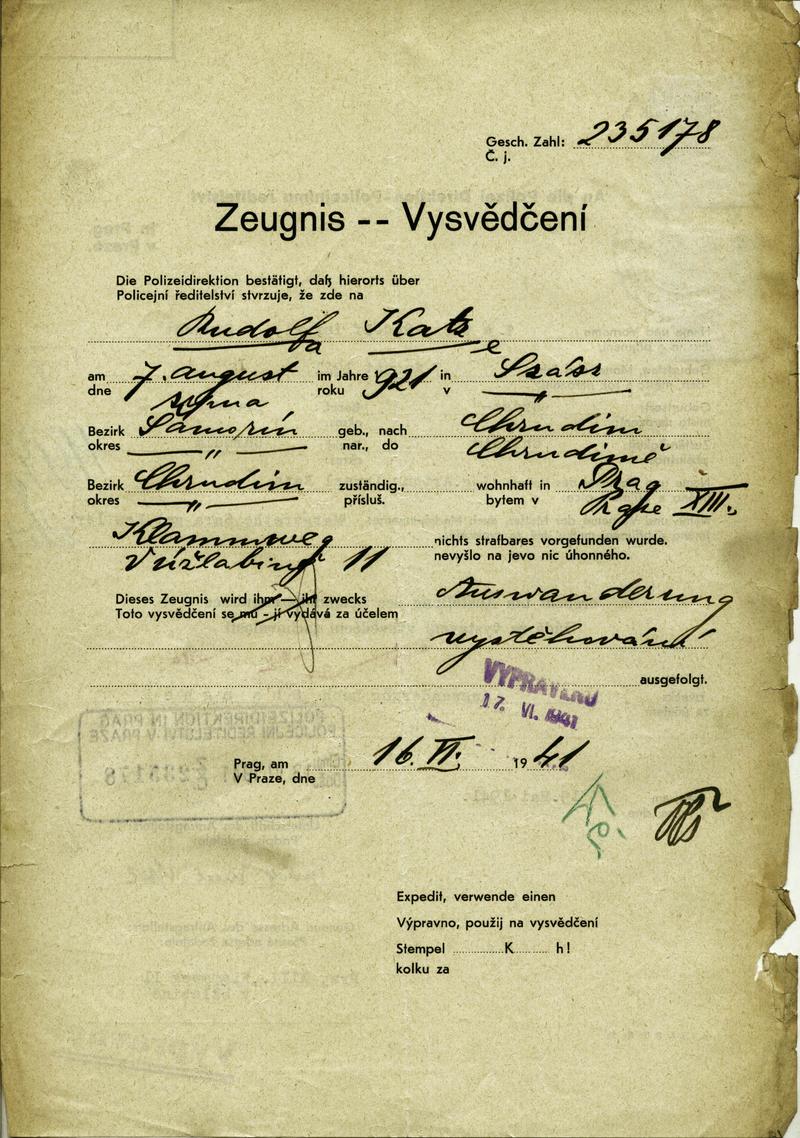 Gesch. Zahl: 235178
Č. j.
Zeugnis -- Vysvědčení
Die Polizeidirektion bestätigt, daß hierorts über
Policejní ředitelství stvrzuje, že zde na
Rudolf Katz
a e
am 7. august im Jahre 921 in Szász
dne srpna roku v "
Bezirk Šamorín geb., nach Chrudim
okres " nar., do Chrudimě
Bezirk Chrudim zuständig., wohnhaft in Prag
okres " přísluš. bytem v Praze XIII.,
Klammweg nichts strafbares vorgefunden wurde.
V úžlabině 11 nevyšlo na jevo nic úhonného.
Dieses Zeugnis wird ihm — ihr zwecks Auswanderung
Toto vysvědčení se mu - jí vydává za účelem
vystěhování
ausgefolgt.
VYPRAVENO
17. VI. 1941
Prag, am 16. VI. 1941
V Praze, dne
Expedit, verwende einen
Výpravno, použij na vysvědčení
Stempel K h!
kolku za